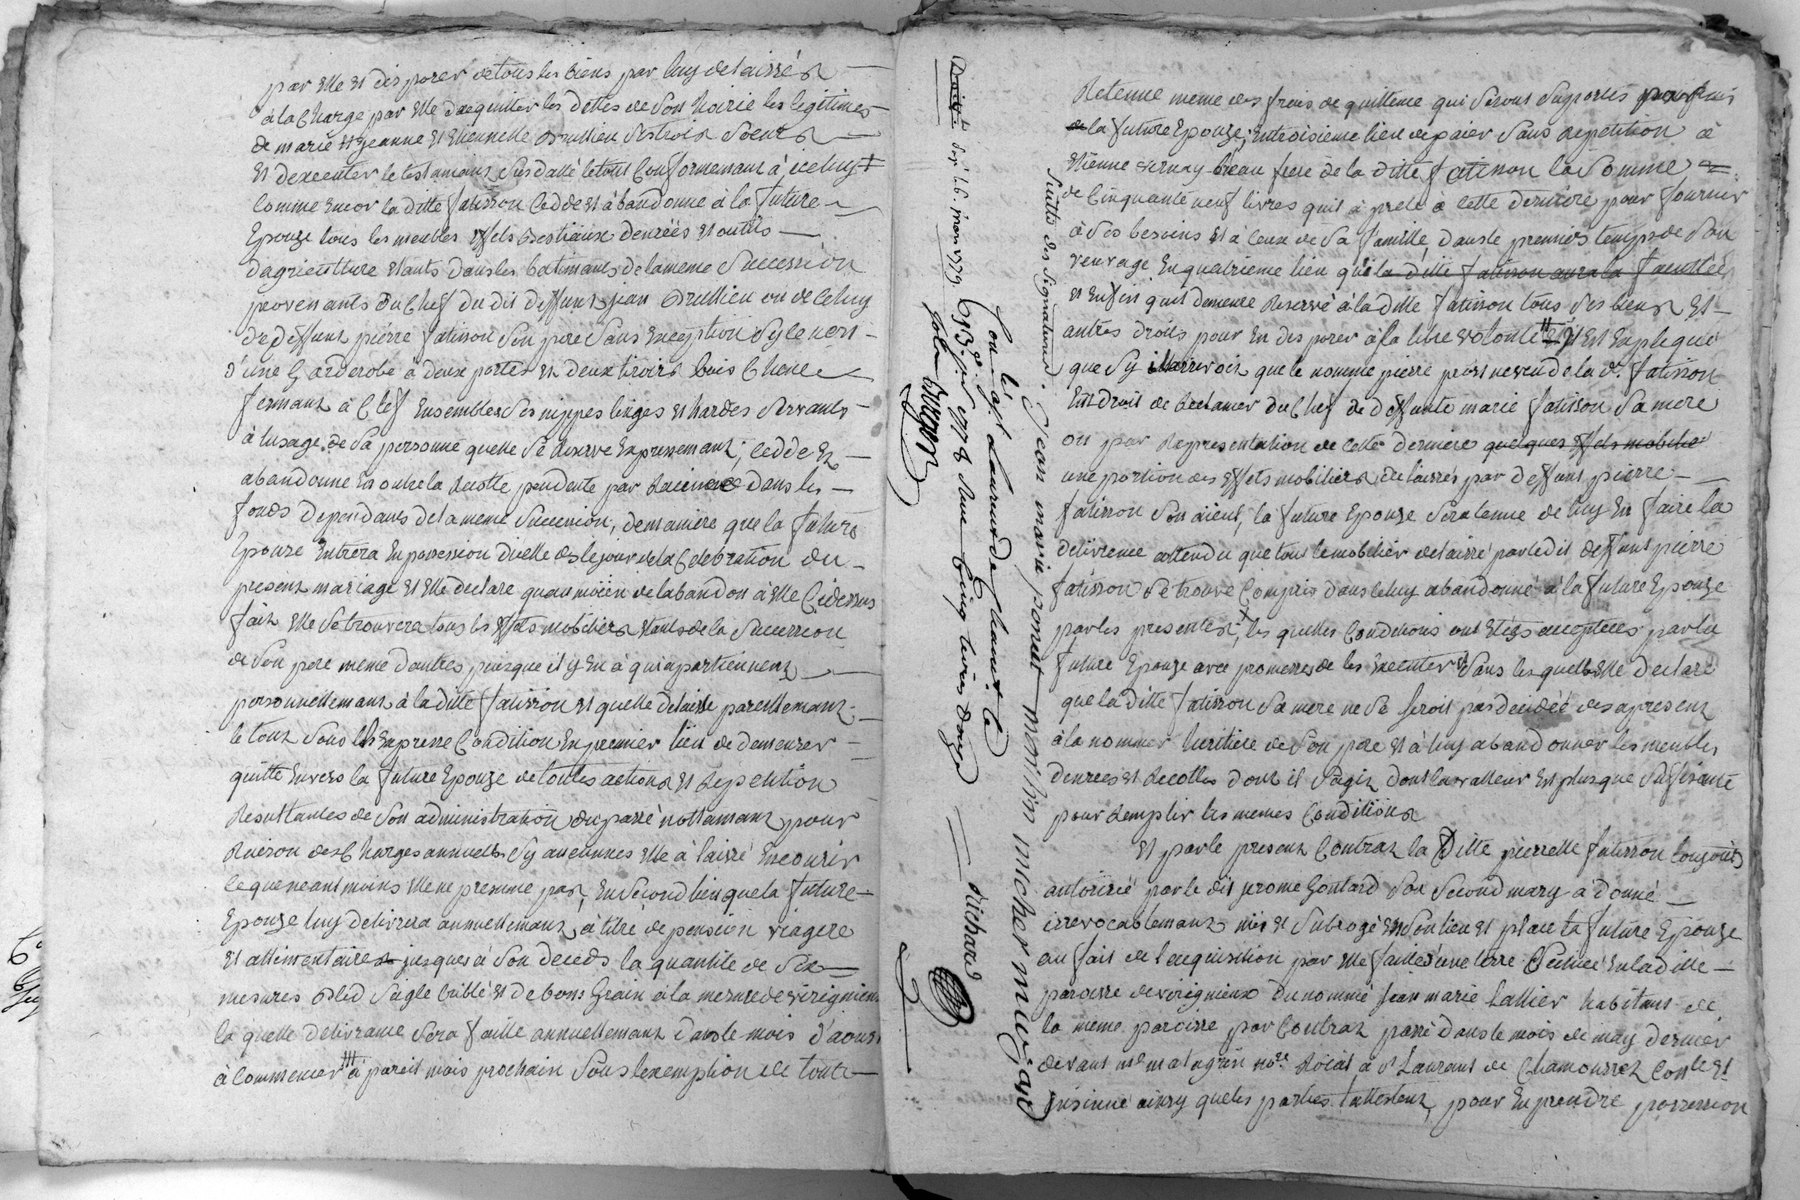 par elle et disposer de tous les biens par luy delaissés
à la charge par elle dacquitter les dettes de son hoirie les legitimes
de marie jeanne et etiennette Brullieu ses trois soeurs
et dexecuter le testamant susdatté letout conformemant à iceluy
comme encor la ditte fatisson cedde et abandonne à la future
Epouze tous les meubles effets bestiaux denrées et outils
dagriculture etants dans les batimants de la meme succession
provenants du chef du dit deffunt jean Brullieu ou de celuy
de deffunt pierre fatisson son pere sans exception sy ce n'est
d'une garderobe à deux portes et deux tiroirs bois chene
fermant à clef ensemble ses nippes linges et hardes servants
à lusage de sa personne quelle se reserve expressemant, cedde et
abandonne en outre la recolte pendente par racines dans les
fonds dependants de la meme succession, de maniere que la future
Epouze entrera en possession dicelle dès le jour de la celebration du
present mariage et elle declare quau moïen de labandon à elle cidessus
fait elle se trouvera tous les effets mobiliers etants de la succession
de son pere meme dautres puisque il y en à qui apartiennent
personnellemant à la ditte fatisson et quelle delaisse pareillemant
le tout sous les expresse condition en premier lieu de demeurer
quitte envers la future Epouze de toutes actions et repetition
resultantes de son administration du passé nottamant pour
raison des charges annuelles sy aucunnes elle à laissé encourir
ce que neantmoins elle ne presume pas, en second lieu que la future
Epouze luy delivrera annuellemant à titre de pension viagere
et allimentaire jusques à son deceds la quantité de six
mesures bled seigle criblé et de bons grain à la mesure de virignieux
la quelle delivrance sera faitte annuellemant dans le mois d'aoust
à commencer à pareil mois prochain sous lexemption de toute
Controllé à St Laurent de Chamousset le
dix 16 janvier 1779
Reçu cinq livres douze
Richard
suitte des signatures
jean marie poncet morillon micher mugard
Retenue meme des frais de quittence qui seront suportés
de la future Epouze, en troisieme lieu de paier sans repetition à
etienne vernay beau frere de la ditte fatisson la somme
de cinquante neuf livres quil à preté à cette derniere pour fournir
à ses besoins et a ceux de sa famille dans le premiers temps de son
veuvage en quatrieme lieu que la ditte fatisson aura la faculté
et enfin quil demeure reservé à la ditte fatisson tous ses biens et
autres droits pour en disposer à sa libre volonté et est expliqué
que sy il arrivoit que le nomme pierre neveu de la de. fatisson
eut droit de reclamer du chef de deffunte marie fatisson sa mere
ou par representation de cette derniere quelques effets mobiliers
une portion des effets mobiliers delaissés par deffunt pierre
fatisson son aïeul, la future Epouze sera tenue de luy en faire la
delivrence attendu que tous le mobilier delaissé par le dit deffunt pierre
fatisson se trouve compris dans celuy abandonné à la future Epouze
par les presentes, les quelles conditions ont etées acceptées par la
future Epouze avec promesses de les executer sans les quelles elle declare
que la ditte fatisson sa mere ne se seroit pas decidée des apresent
à la nommer heritiere de son pere et à luy abandonner les meubles
denrées et recoltes dont il sagit dont la valleur est plus que suffisante
pour remplir les memes conditions
et par le present contrat la ditte pierrette fatisson toujours
autorisée par le dit jerome goutard son second mary à donné
irrevocablemant mis et subrogé en son lieu et place la future Epouze
au fait de lacquisition par elle faitte d'une terre scituée en la ditte
paroisse de virignieux du nommé jean marie Lallier habitant de
la meme paroisse par contrat passé dans le mois de may dernier
devant me. matagrin nore. Roial à st Laurant de Chamousset conlé. et
insinué ainsy que les parties lattestent, pour en prendre possession